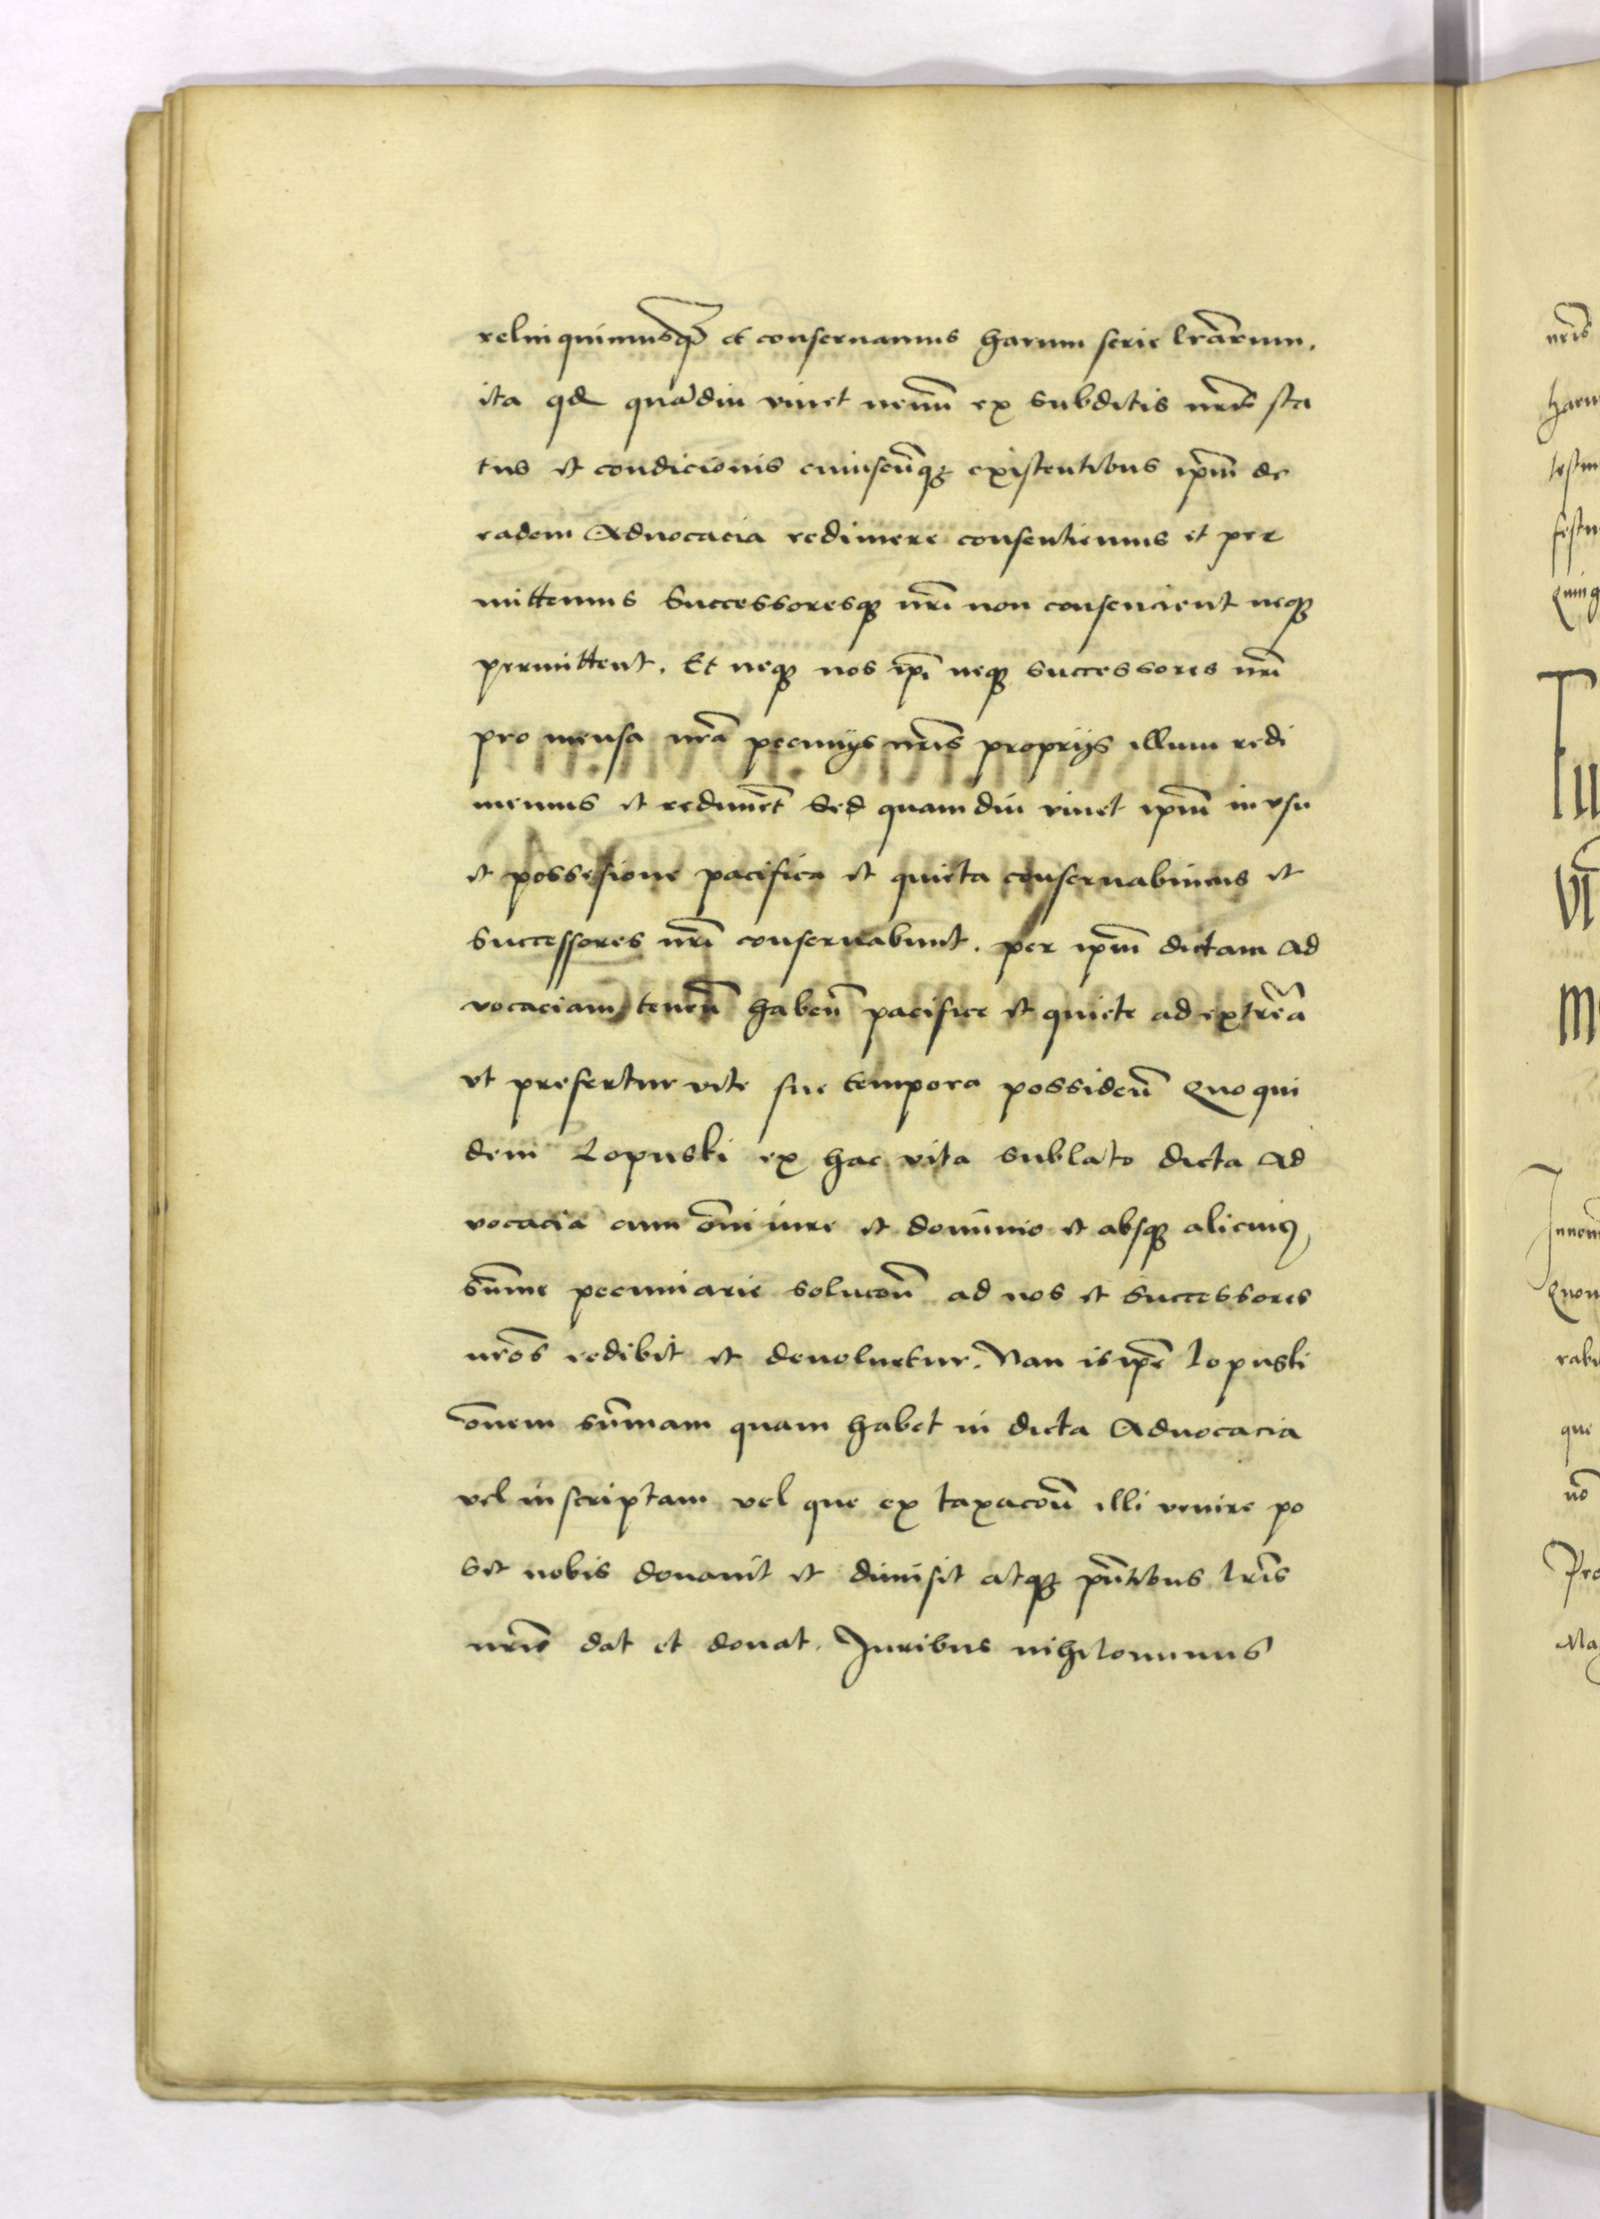 relinquimusq3 et conseruamus harum serie lr̃arum.
ita qd quãdiu viuet nemini ex subditis nr̃is sta
tus et condicionis cuiuscũq3 existentibus ip̃m de
eadem Aduocacia redimere consentiemus et per
mittemus Successoresq3 nr̃i non consencient neq3
permittent. Et neq3 nos ip̃i neq3 successores nr̃i
pro mensa nr̃a pecunijs nr̃is proprijs illum redi
memus et rediment̃ Sed quamdiu viuet ip̃m in vsu
et possessione pacifica et quieta conseruabimus et
successores nr̃i conseruabunt. per ip̃m dictam Ad
vocaciam tenen̄ haben̄ pacifice et quiete ad extrẽa
vt prefertur vite sue tempora possiden̄ Quo qui
dem Lopuski ex hac vita sublato dicta Ad
vocacia cum õni iure et dominio et absq3 alicuius
sum̃e pecuniarie solucõn ad nos et Successores
nr̃os redibit et deuoluetur. Nam is ip̃e lopuski
õnem sum̃am quam habet in dicta Aduocacia
vel inscriptam vel que ex taxacõn illi venire po
sset nobis donauit et dimisit atq3 pñtibus lr̃is
nr̃is dat et donat. Juribus nihilominus